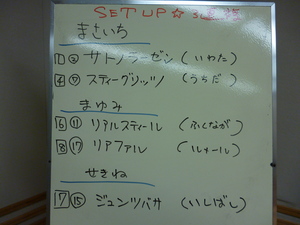 SET UP☆
まさいち
サトノラーゼン (いわた)
スティーグリッツ (うちだ)
まゆみ
6 ⑪ リアルスティール (ふくなが)
8 ⑰ リアファル (ルメール)
せきね
7 ⑮ ジュンツバサ (いしばし)